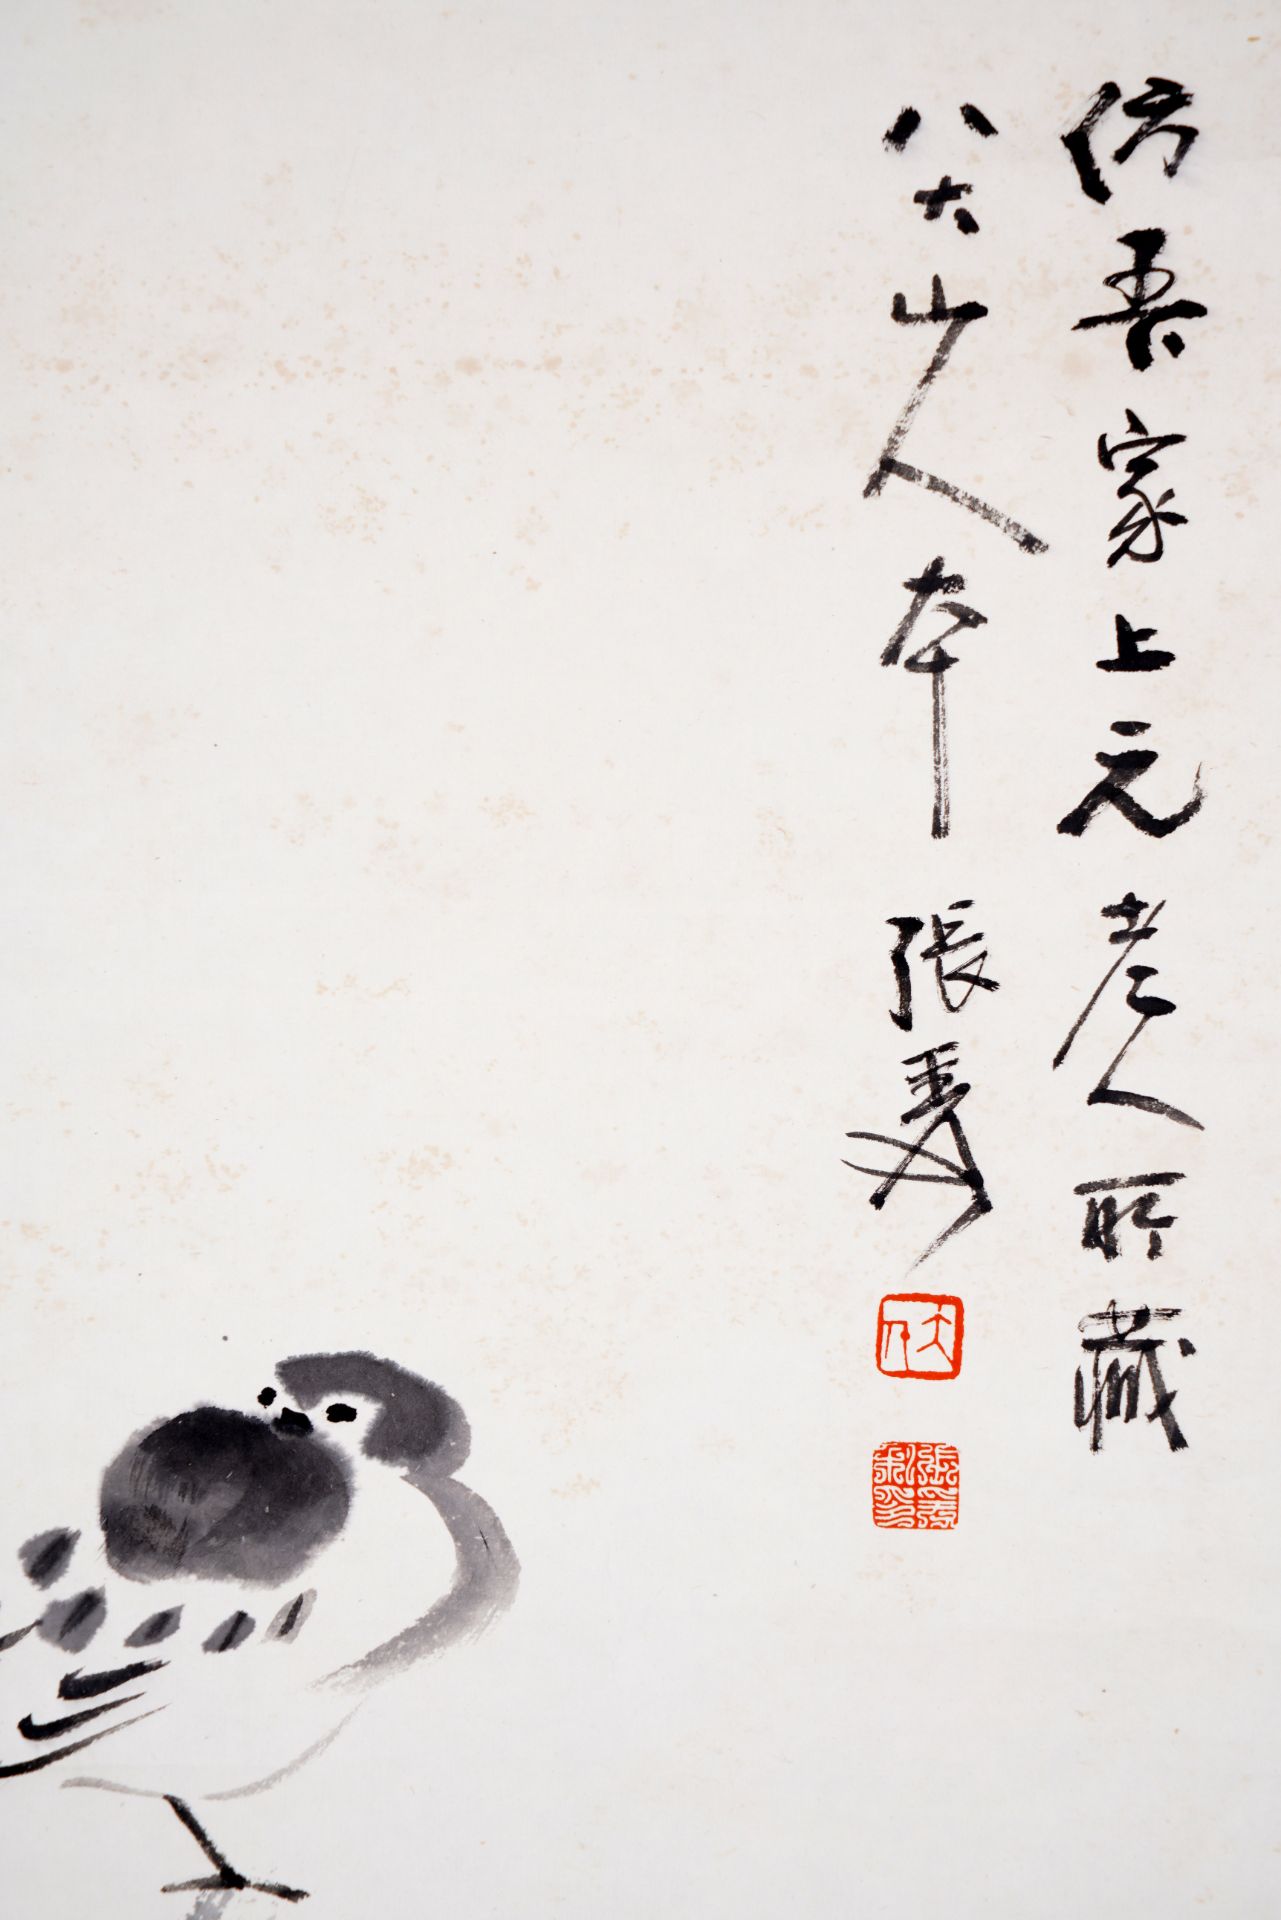 仿吾家上元老人所藏
八大山人本 張爰
大千
張爰私印